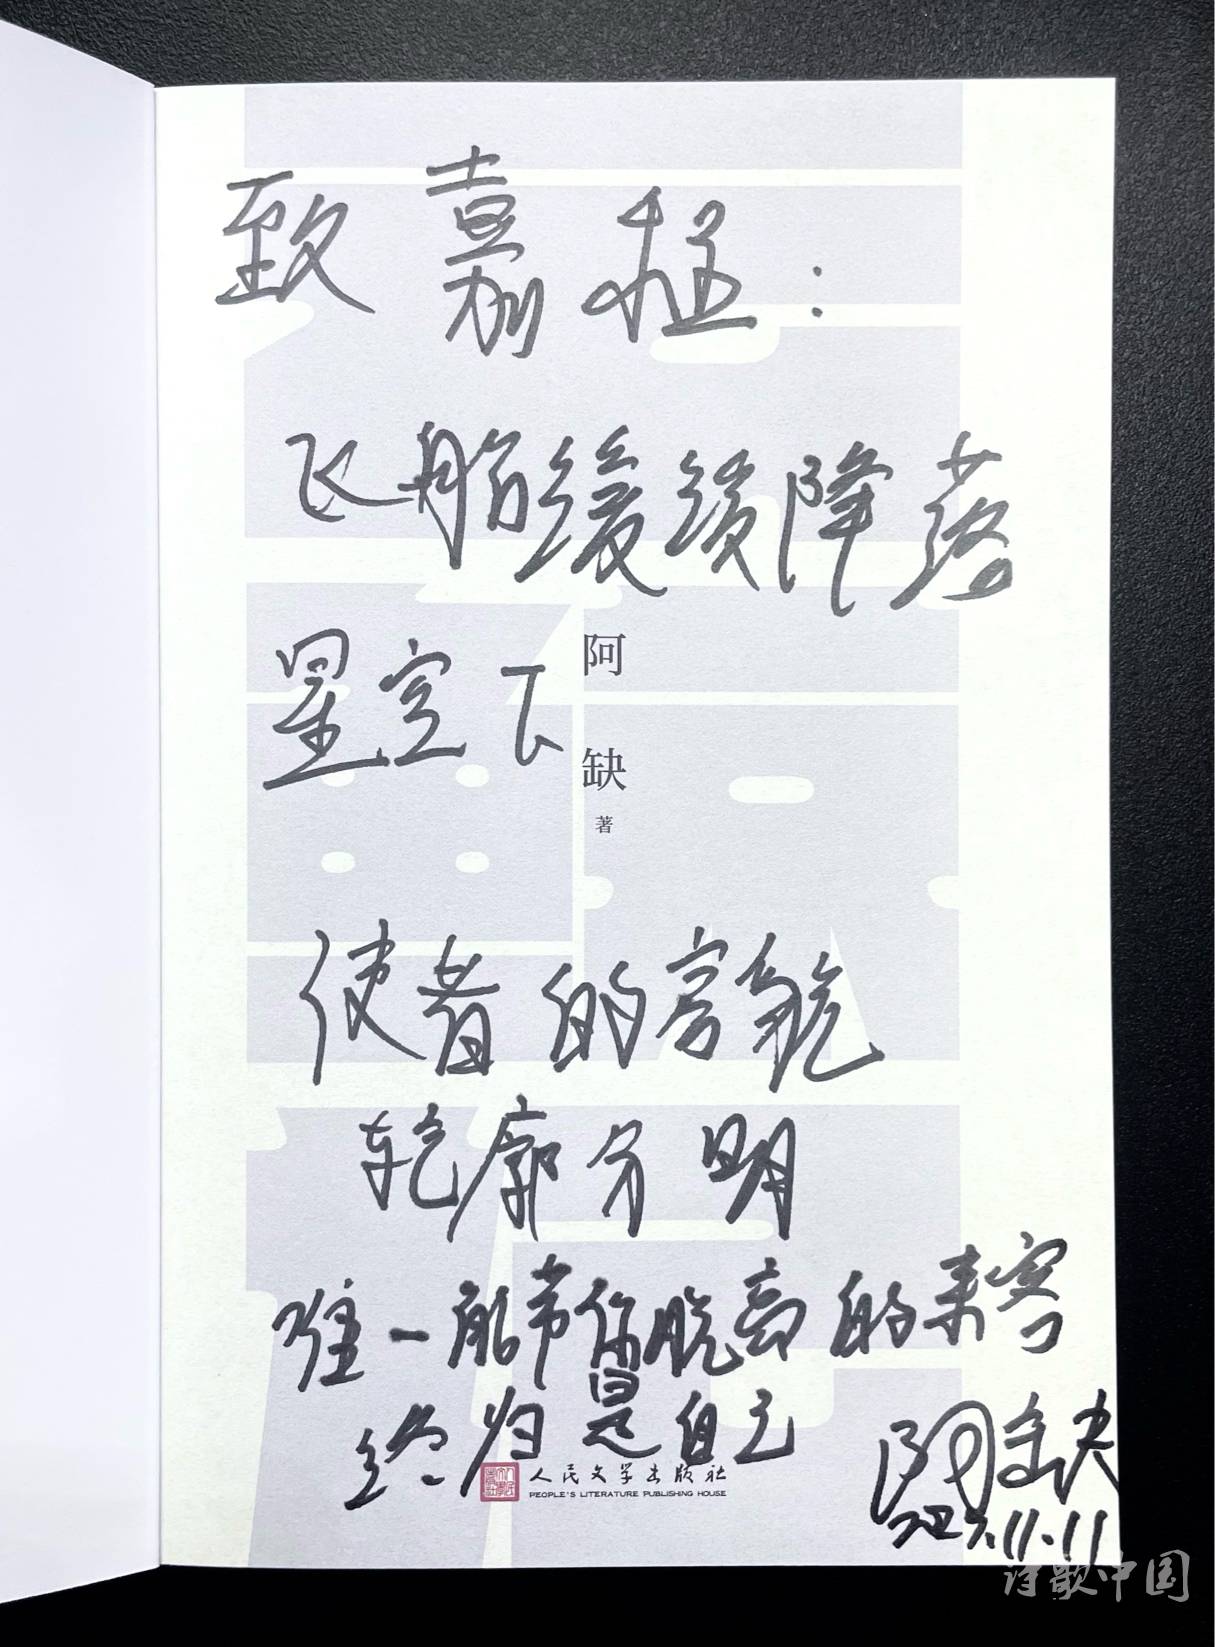 致嘉桢：
飞船缓缓降落
星空下
阿
缺
著
使者的
轮廓分明
唯一能带你脱离的来客
终归是自己
人民文学出版社
PEOPLE'S LITERATURE PUBLISHING HOUSE
阿缺
11.11
诗歌中国